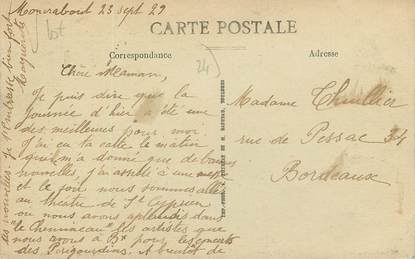 Moncrabeau 23 sept 29
CARTE POSTALE
Correspondance
Adresse
24
Chère Maman,
Je puis dire que la
journée d'hier a été une
des meilleures pour moi
J'ai eu ta carte le matin
qui m'a donné que de bonnes
nouvelles, j'ai assisté à une
et le soir nous sommes allé
au théâtre de St Cyprien
ou nous avons applaudis dans
"le Chemineau" les artistes que
nous avons à Bx pour les concerts
des Périgourdins. A bientôt de
tes nouvelles. Je t'embrasse bien fort
Marguerite
Madame Thuillier
rue de Pessac 34
Bordeaux